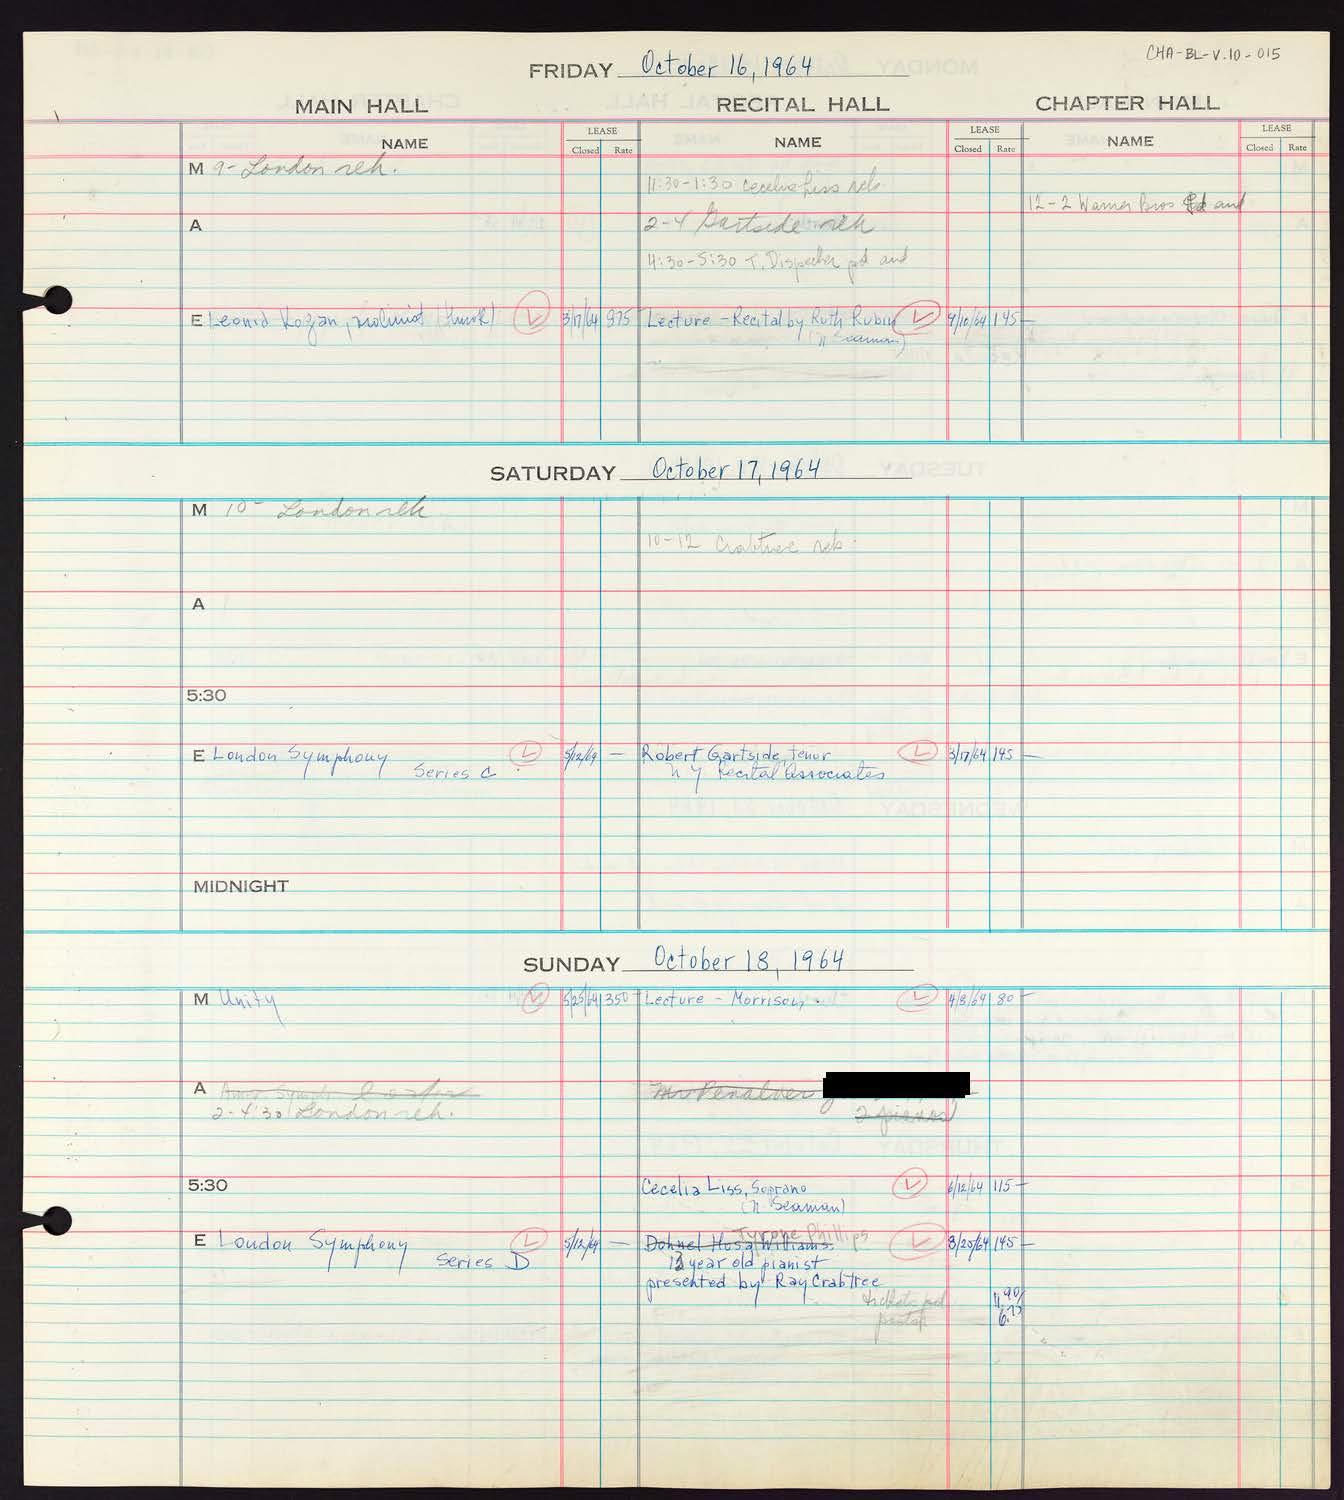 CHA-BL-V.10-015
FRIDAY October 16, 1964
MAIN HALL RECITAL HALL CHAPTER HALL
NAME LEASE Closed Rate NAME LEASE Closed Rate NAME LEASE Closed Rate
M 9- London reh.
11:30-1:30 Cecelia Liss reh.
12-2 Warner Bros pd and
A 2-4 Gartside reh
4:30-5:30 T. Dispecker pd and
E Leonid Kogan, violinist (Hurok) 3/17/64 975 Lecture - Recital by Ruth Rubin 9/10/64 145-
(N Seaman)
SATURDAY October 17, 1964
M 10- London reh
10-12 Crabtree reh.
A
5:30
E London Symphony 5/12/64 - Robert Gartside, tenor 3/17/64 145-
Series C N Y Recital Associates
MIDNIGHT
SUNDAY October 18, 1964
M Unity 5/25/64 350- Lecture - Morrison 4/8/64 80-
A Amer. Symph. Mr Penalver
2-4:30 London reh. 2 pianos
5:30 Cecelia Liss, Soprano 6/12/64 115-
(N. Seaman)
Tyrone Phillips
E London Symphony 5/12/64 - Dohnel Hosa Williams. 3/20/64 145-
Series D 13 year old pianist
presented by Ray Crabtree
tickets pd
11.90
6.75